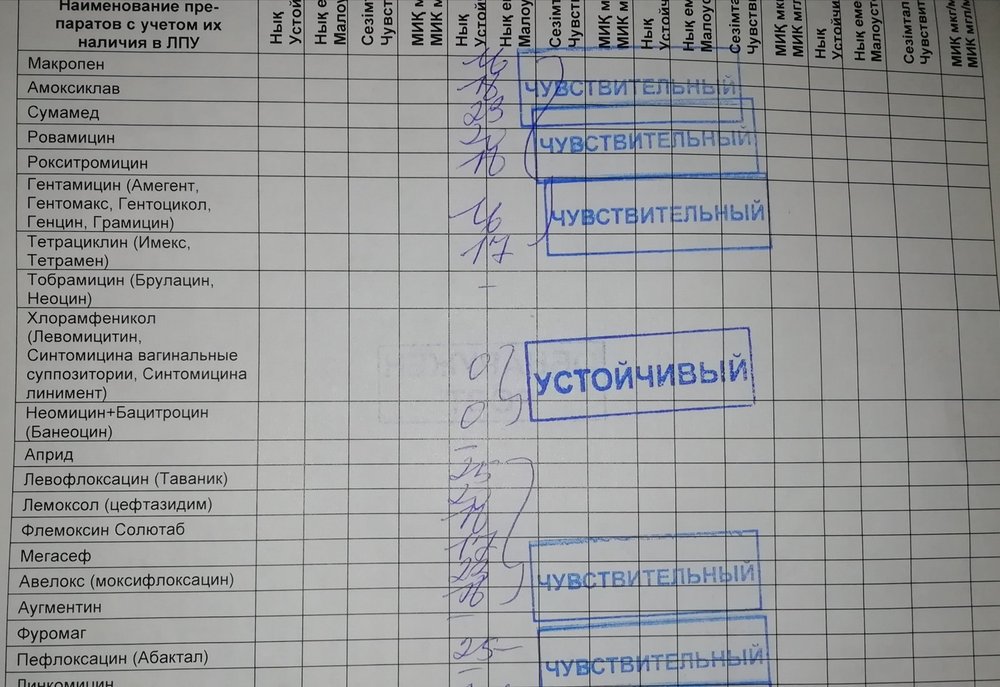 Наименование пре-
паратов с учетом их
наличия в ЛПУ
Нық
Устой
Нық е
Мало
Сезім
Чувст
МИҚ м
МИК м
Нық
Устой
Нық ем
Малоу
Сезім
Чувств
МИҚ м
МИК м
Нық
Устой
Нық еме
Малоус
Сезімт
Чувств
МИҚ мк
МИК мг
Нық
Устойчи
Нық еме
Малоуст
Сезімтал
Чувствит
МИҚ мкг/м
МИК мгл/м
Макропен 16
Амоксиклав 18 ЧУВСТВИТЕЛЬНЫЙ
Сумамед 23
Ровамицин ЧУВСТВИТЕЛЬНЫЙ
Рокситромицин 18
Гентамицин (Амегент,
Гентомакс, Гентоцикол,
Генцин, Грамицин) 16 ЧУВСТВИТЕЛЬНЫЙ
Тетрациклин (Имекс,
Тетрамен) 17
Тобрамицин (Брулацин,
Неоцин) –
Хлорамфеникол
(Левомицитин,
Синтомицина вагинальные
суппозитории, Синтомицина
линимент) 0 УСТОЙЧИВЫЙ
Неомицин+Бацитроцин
(Банеоцин) 0
Априд –
Левофлоксацин (Таваник) 25
Лемоксол (цефтазидим)
Флемоксин Солютаб
Мегасеф 17
Авелокс (моксифлоксацин) 23 ЧУВСТВИТЕЛЬНЫЙ
Аугментин 18
Фуромаг –
Пефлоксацин (Абактал) 25 – ЧУВСТВИТЕЛЬНЫЙ
Линкомицин –